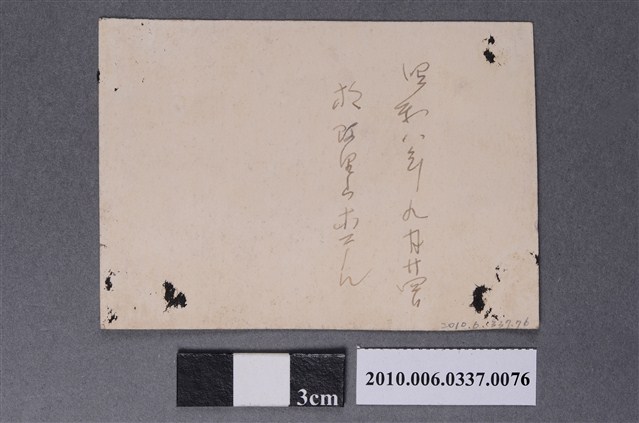 昭和八年九月廿四日
於阿里山ホーム
2010.6.0337.76
3cm
2010.006.0337.0076